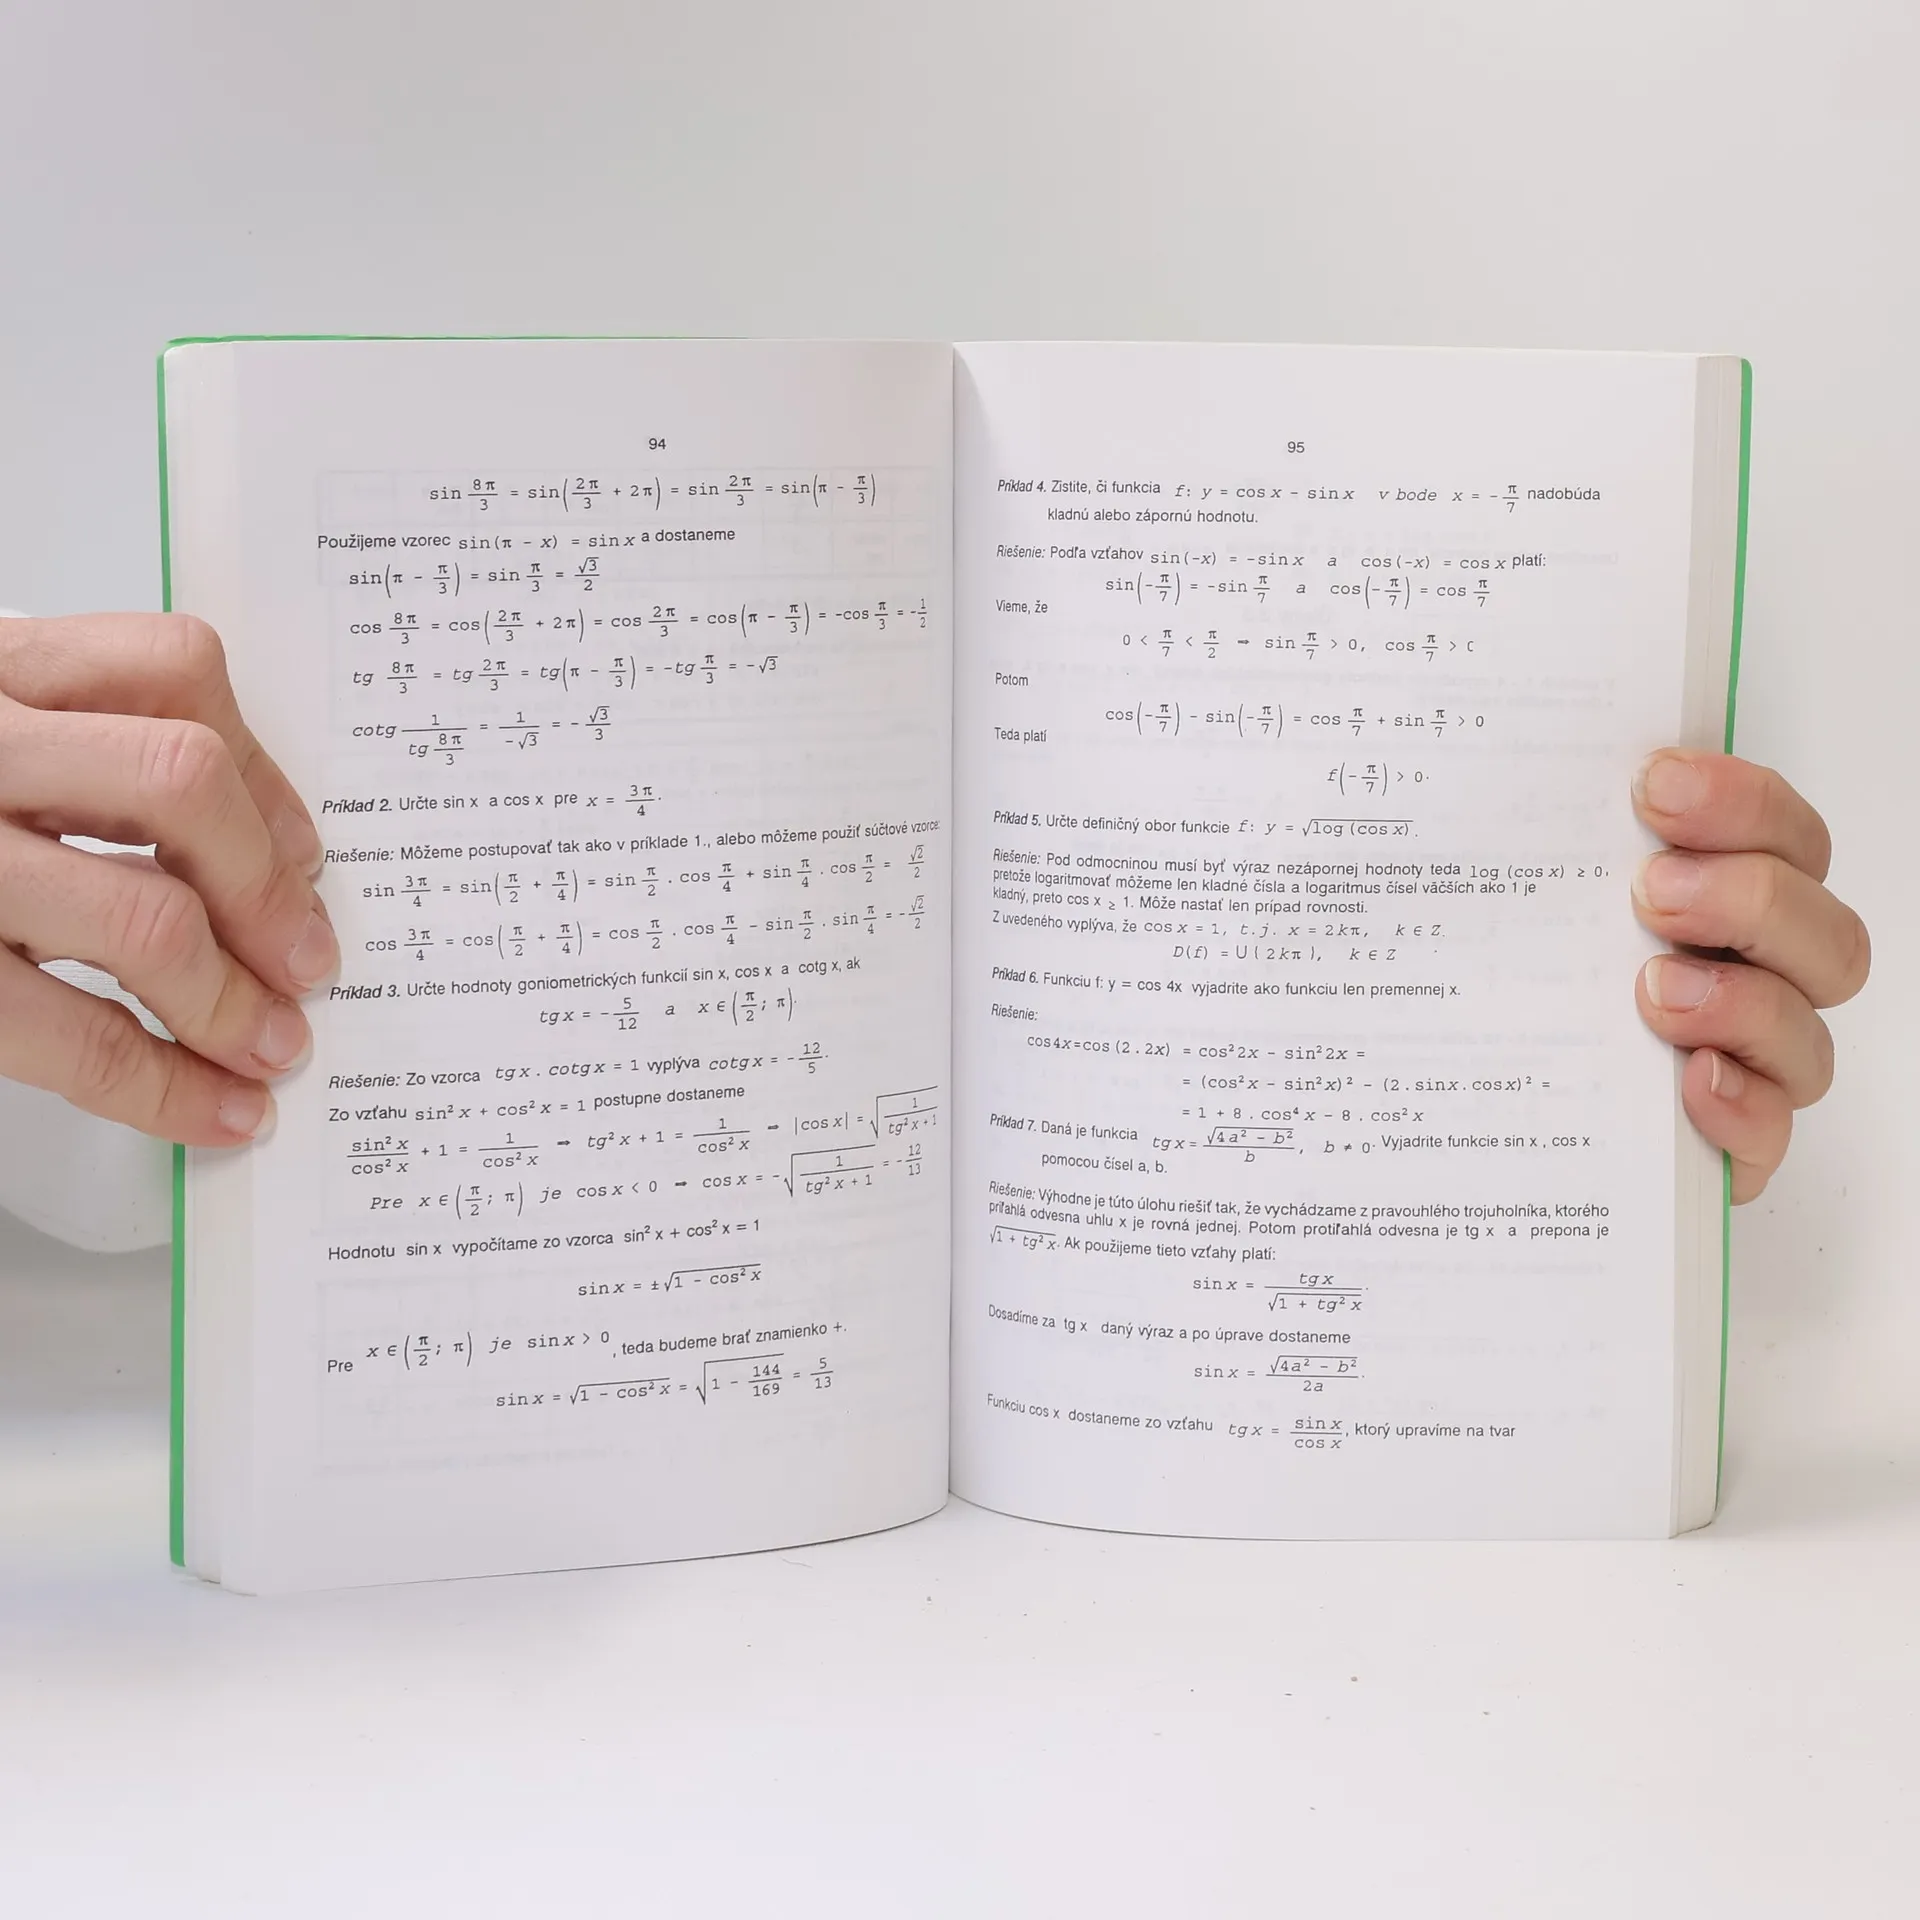 94
sin 8π/3 = sin(2π/3 + 2π) = sin 2π/3 = sin(π - π/3)
Použijeme vzorec sin(π - x) = sin x a dostaneme
sin(π - π/3) = sin π/3 = √3/2
cos 8π/3 = cos(2π/3 + 2π) = cos 2π/3 = cos(π - π/3) = -cos π/3 = -1/2
tg 8π/3 = tg 2π/3 = tg(π - π/3) = -tg π/3 = -√3
cotg 1/(tg 8π/3) = 1/(-√3) = -√3/3
Príklad 2. Určte sin x a cos x pre x = 3π/4.
Riešenie: Môžeme postupovať tak ako v príklade 1., alebo môžeme použiť súčtové vzorce:
sin 3π/4 = sin(π/2 + π/4) = sin π/2 . cos π/4 + sin π/4 . cos π/2 = √2/2
cos 3π/4 = cos(π/2 + π/4) = cos π/2 . cos π/4 - sin π/2 . sin π/4 = -√2/2
Príklad 3. Určte hodnoty goniometrických funkcií sin x, cos x a cotg x, ak
tg x = -5/12 a x ∈ (π/2; π).
Riešenie: Zo vzorca tg x . cotg x = 1 vyplýva cotg x = -12/5.
Zo vzťahu sin² x + cos² x = 1 postupne dostaneme
sin² x/cos² x + 1 = 1/cos² x ⇒ tg² x + 1 = 1/cos² x ⇒ |cos x| = √(1/(tg² x + 1))
Pre x ∈ (π/2; π) je cos x < 0 ⇒ cos x = -√(1/(tg² x + 1)) = -12/13
Hodnotu sin x vypočítame zo vzorca sin² x + cos² x = 1
sin x = ±√(1 - cos² x)
Pre x ∈ (π/2; π) je sin x > 0, teda budeme brať znamienko +.
sin x = √(1 - cos² x) = √(1 - 144/169) = 5/13
95
Príklad 4. Zistite, či funkcia f: y = cos x - sin x v bode x = -π/7 nadobúda
kladnú alebo zápornú hodnotu.
Riešenie: Podľa vzťahov sin(-x) = -sin x a cos(-x) = cos x platí:
sin(-π/7) = -sin π/7 a cos(-π/7) = cos π/7
Vieme, že
0 < π/7 < π/2 ⇒ sin π/7 > 0, cos π/7 > 0
Potom
cos(-π/7) - sin(-π/7) = cos π/7 + sin π/7 > 0
Teda platí
f(-π/7) > 0.
Príklad 5. Určte definičný obor funkcie f: y = √(log (cos x)).
Riešenie: Pod odmocninou musí byť výraz nezápornej hodnoty teda log (cos x) ≥ 0,
pretože logaritmovať môžeme len kladné čísla a logaritmus čísel väčších ako 1 je
kladný, preto cos x ≥ 1. Môže nastať len prípad rovnosti.
Z uvedeného vyplýva, že cos x = 1, t.j. x = 2kπ, k ∈ Z.
D(f) = U{2kπ}, k ∈ Z
Príklad 6. Funkciu f: y = cos 4x vyjadrite ako funkciu len premennej x.
Riešenie:
cos 4x = cos (2 . 2x) = cos² 2x - sin² 2x =
= (cos² x - sin² x)² - (2 . sin x . cos x)² =
= 1 + 8 . cos⁴ x - 8 . cos² x
Príklad 7. Daná je funkcia tg x = √(4a² - b²)/b, b ≠ 0. Vyjadrite funkcie sin x , cos x
pomocou čísel a, b.
Riešenie: Výhodne je túto úlohu riešiť tak, že vychádzame z pravouhlého trojuholníka, ktorého
priľahlá odvesna uhlu x je rovná jednej. Potom protiľahlá odvesna je tg x a prepona je
√(1 + tg² x). Ak použijeme tieto vzťahy platí:
sin x = tg x/√(1 + tg² x).
Dosadíme za tg x daný výraz a po úprave dostaneme
sin x = √(4a² - b²)/2a.
Funkciu cos x dostaneme zo vzťahu tg x = sin x/cos x, ktorý upravíme na tvar